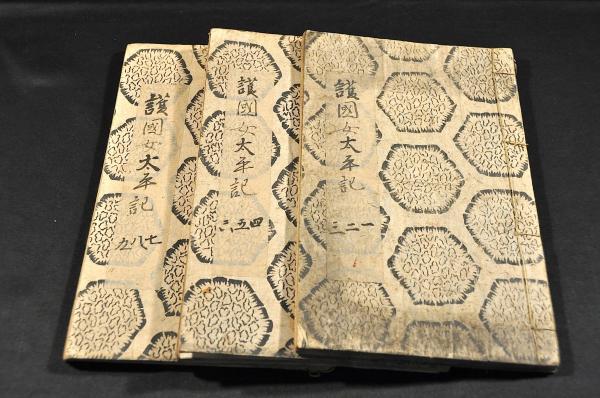 護國女太平記
一二三
護國女太平記
四五六
護國女太平記
七八九